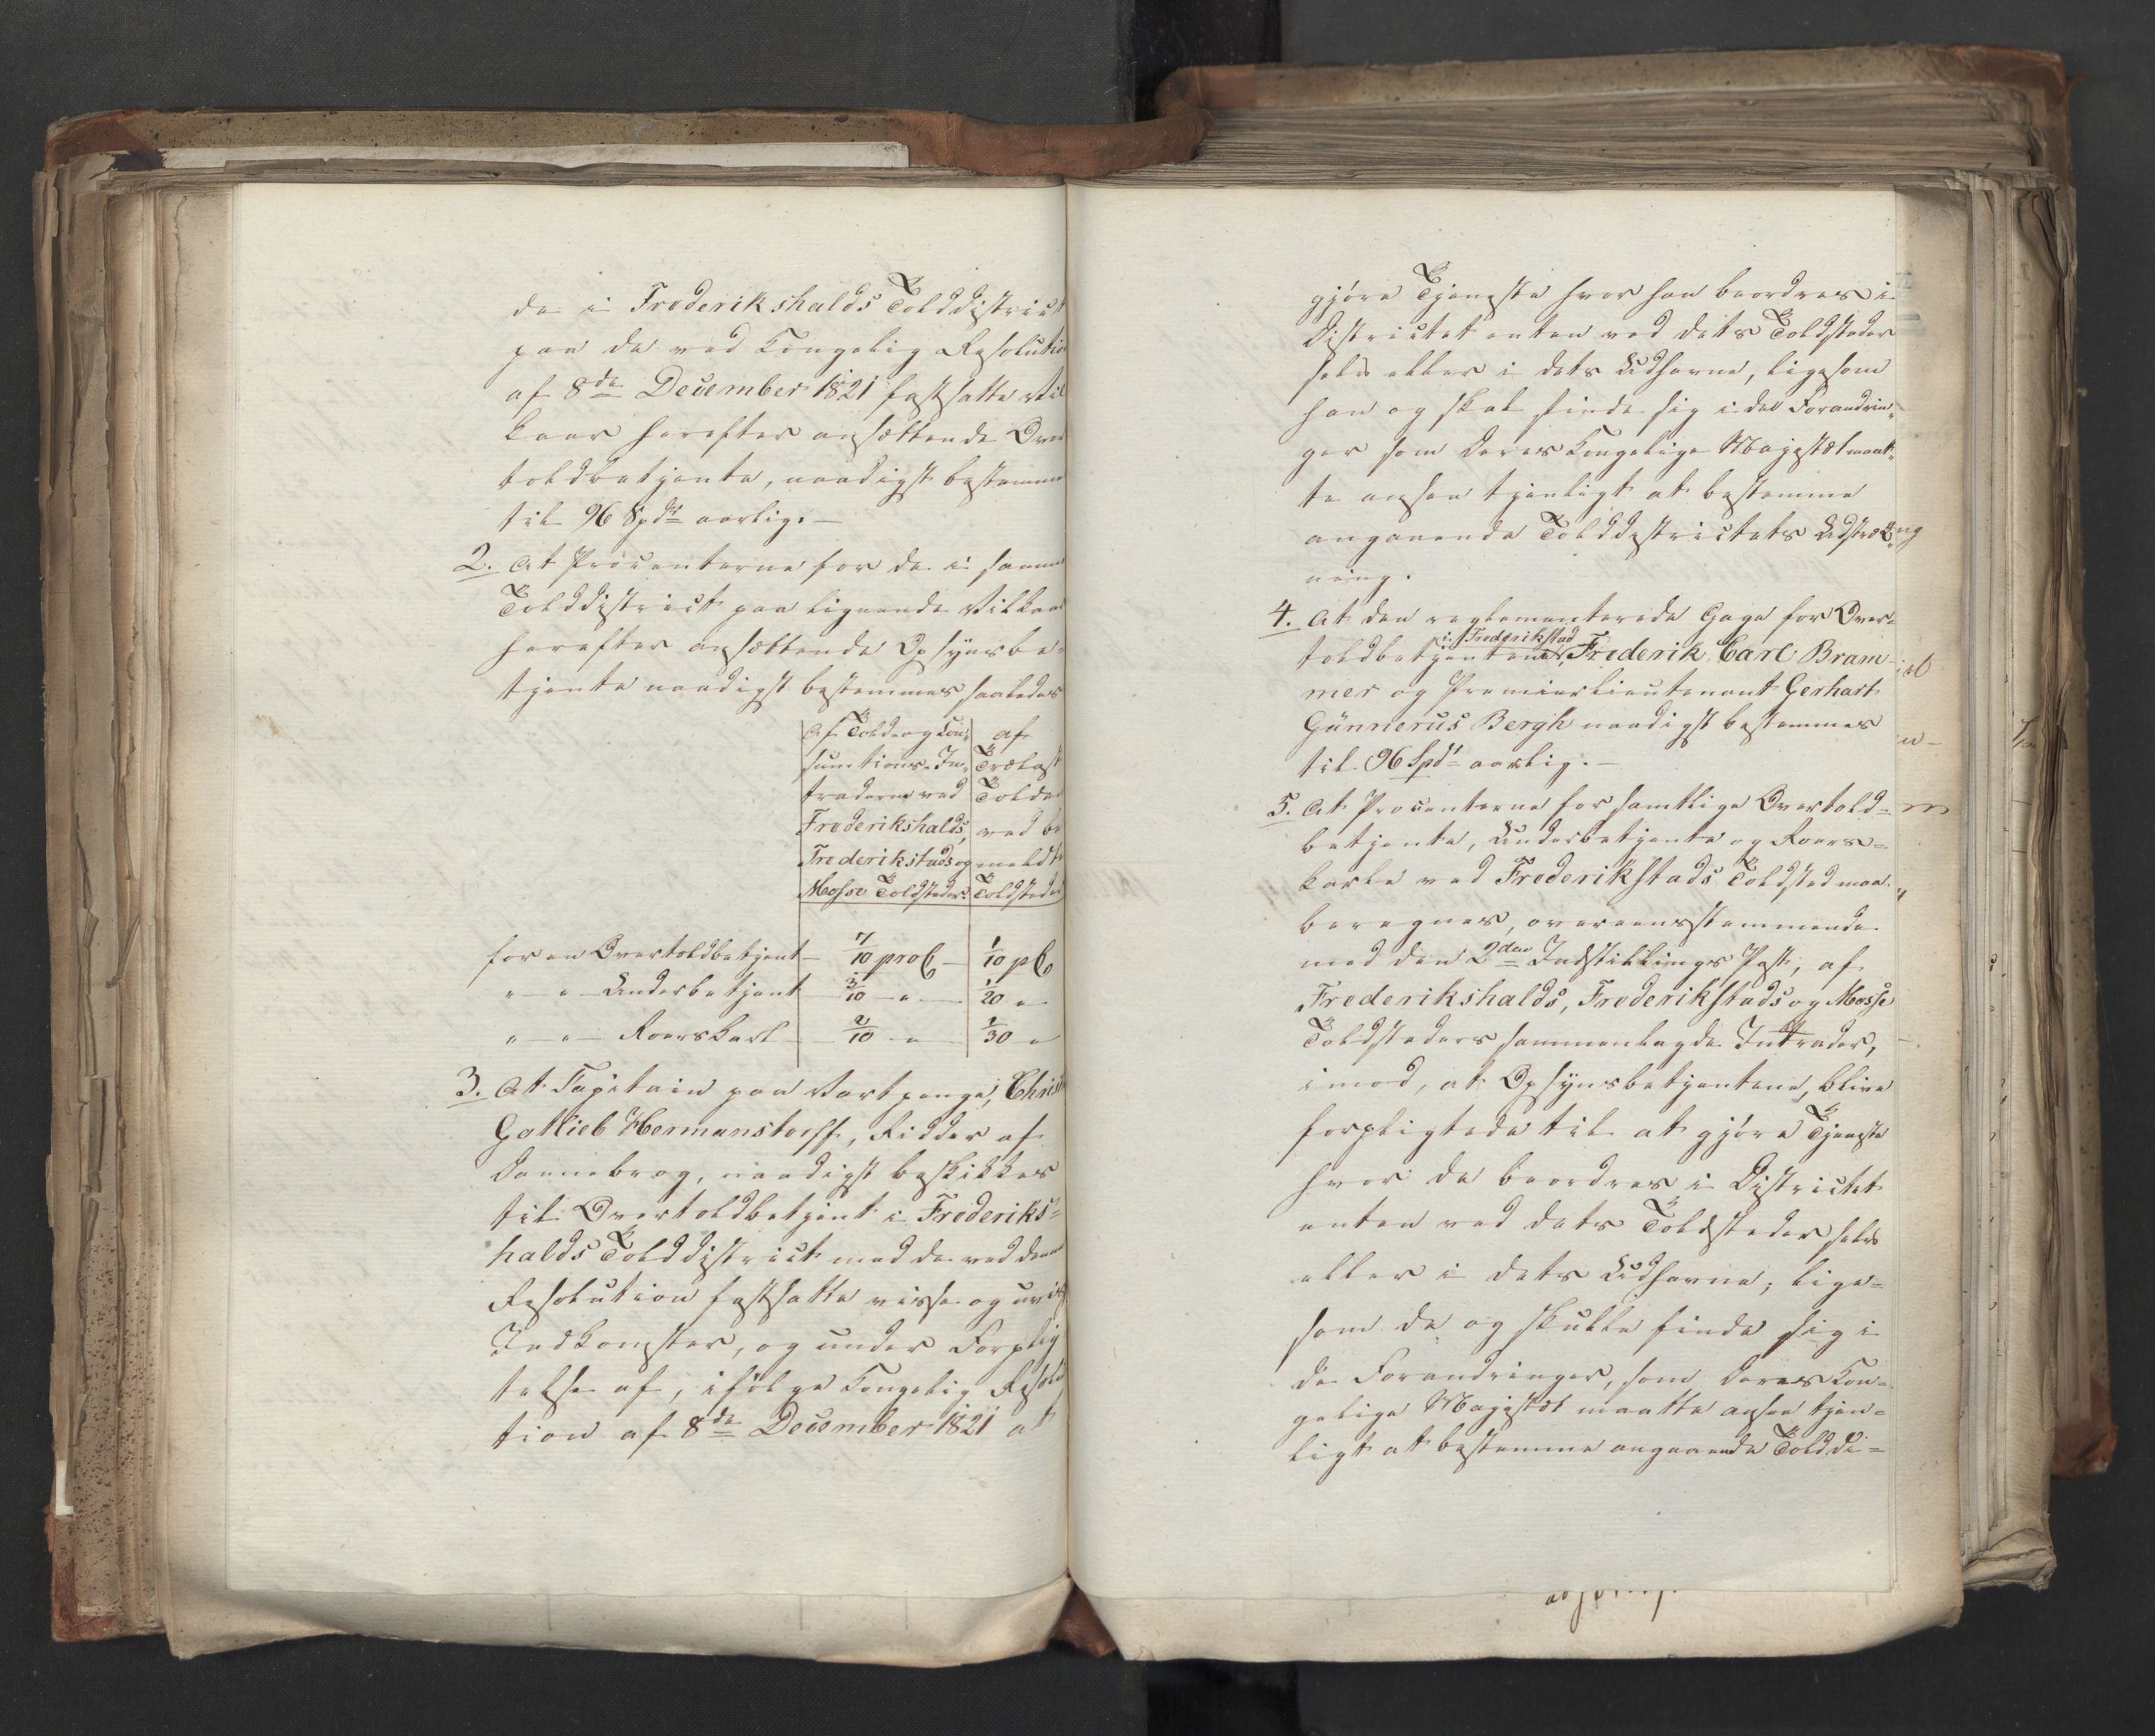 de i Frederikshalds Tolddistrict
paa de ved Kongelig Resolution
af 8de December 1821 fastsatte Vil
kaar herefter ansættende Over
toldbetjente, naadigst bestemmes
til 96 Spdr aarlig. —
2. At Procenterne for de i samme
Tolddistrict paa lignende Vilkaar
herefter ansættende Opsynsbe-
tjente naadigst bestemmes saaledes
Af Told- og Con- af
sumtions-In- Trælast
traderne ved Tolden
Frederikshalds, ved be
Frederikstads og meldte
Mosse Toldsteder. Toldsteder
for en Overtoldbetjent — 7/10 proC — 1/10 pC
" — " — Underbetjent 3/10 — " — 1/20 "
" — " — Roerskarl — 2/10 — " — 1/30 "
3. At Capitain paa Vartpenge, Christ
Gotlieb Hermanstorff, Ridder af
Dannebrog, naadigst beskikkes
til Overtoldbetjent i Frederiks-
halds Tolddistrict med de ved denne
Resolution fastsatte visse og uvis
Indkomster, og under Forplig
telse af, ifølge Kongelig Resolu
tion af 8de December 1821 at
gjøre Tjeneste hvor han beordres i
Districtet enten ved dets Toldsteder
selv eller i dets Udhavne, ligesom
han og skal finde sig i de Forandrin-
ger som Deres Kongelige Majestæt maat-
te ansee tjenligt at bestemme
angaaende Tolddistrictets Udstræk-
ning.
4. At den reglementerede Gage for Over-
toldbetjentene i Frederikstad, Frederik Carl Bram-
mer og Premierlieutenant Gerhart
Günnerus Bergh naadigst bestemmes
til 96 Spdr aarlig. —
5. At Procenterne for samtlige Overtold-
betjente, Underbetjente og Roers-
karle ved Frederikstads Toldsted maa
beregnes, overeensstemmende
med den 2den Indstillings Post, af
Frederikshalds, Frederikstads og Mosse
Toldsteders sammenlagde Intrader,
imod, at Opsynsbetjentene, blive
forpligtede til at gjøre Tjeneste
hvor de beordres i Districtet
enten ved dets Toldsteder selv
eller i dets Udhavne; lige-
som de og skulle finde sig i
de Forandringer, som Deres Kon-
gelige Majestæt maatte ansee tjen-
ligt at bestemme angaaende Tolddi-